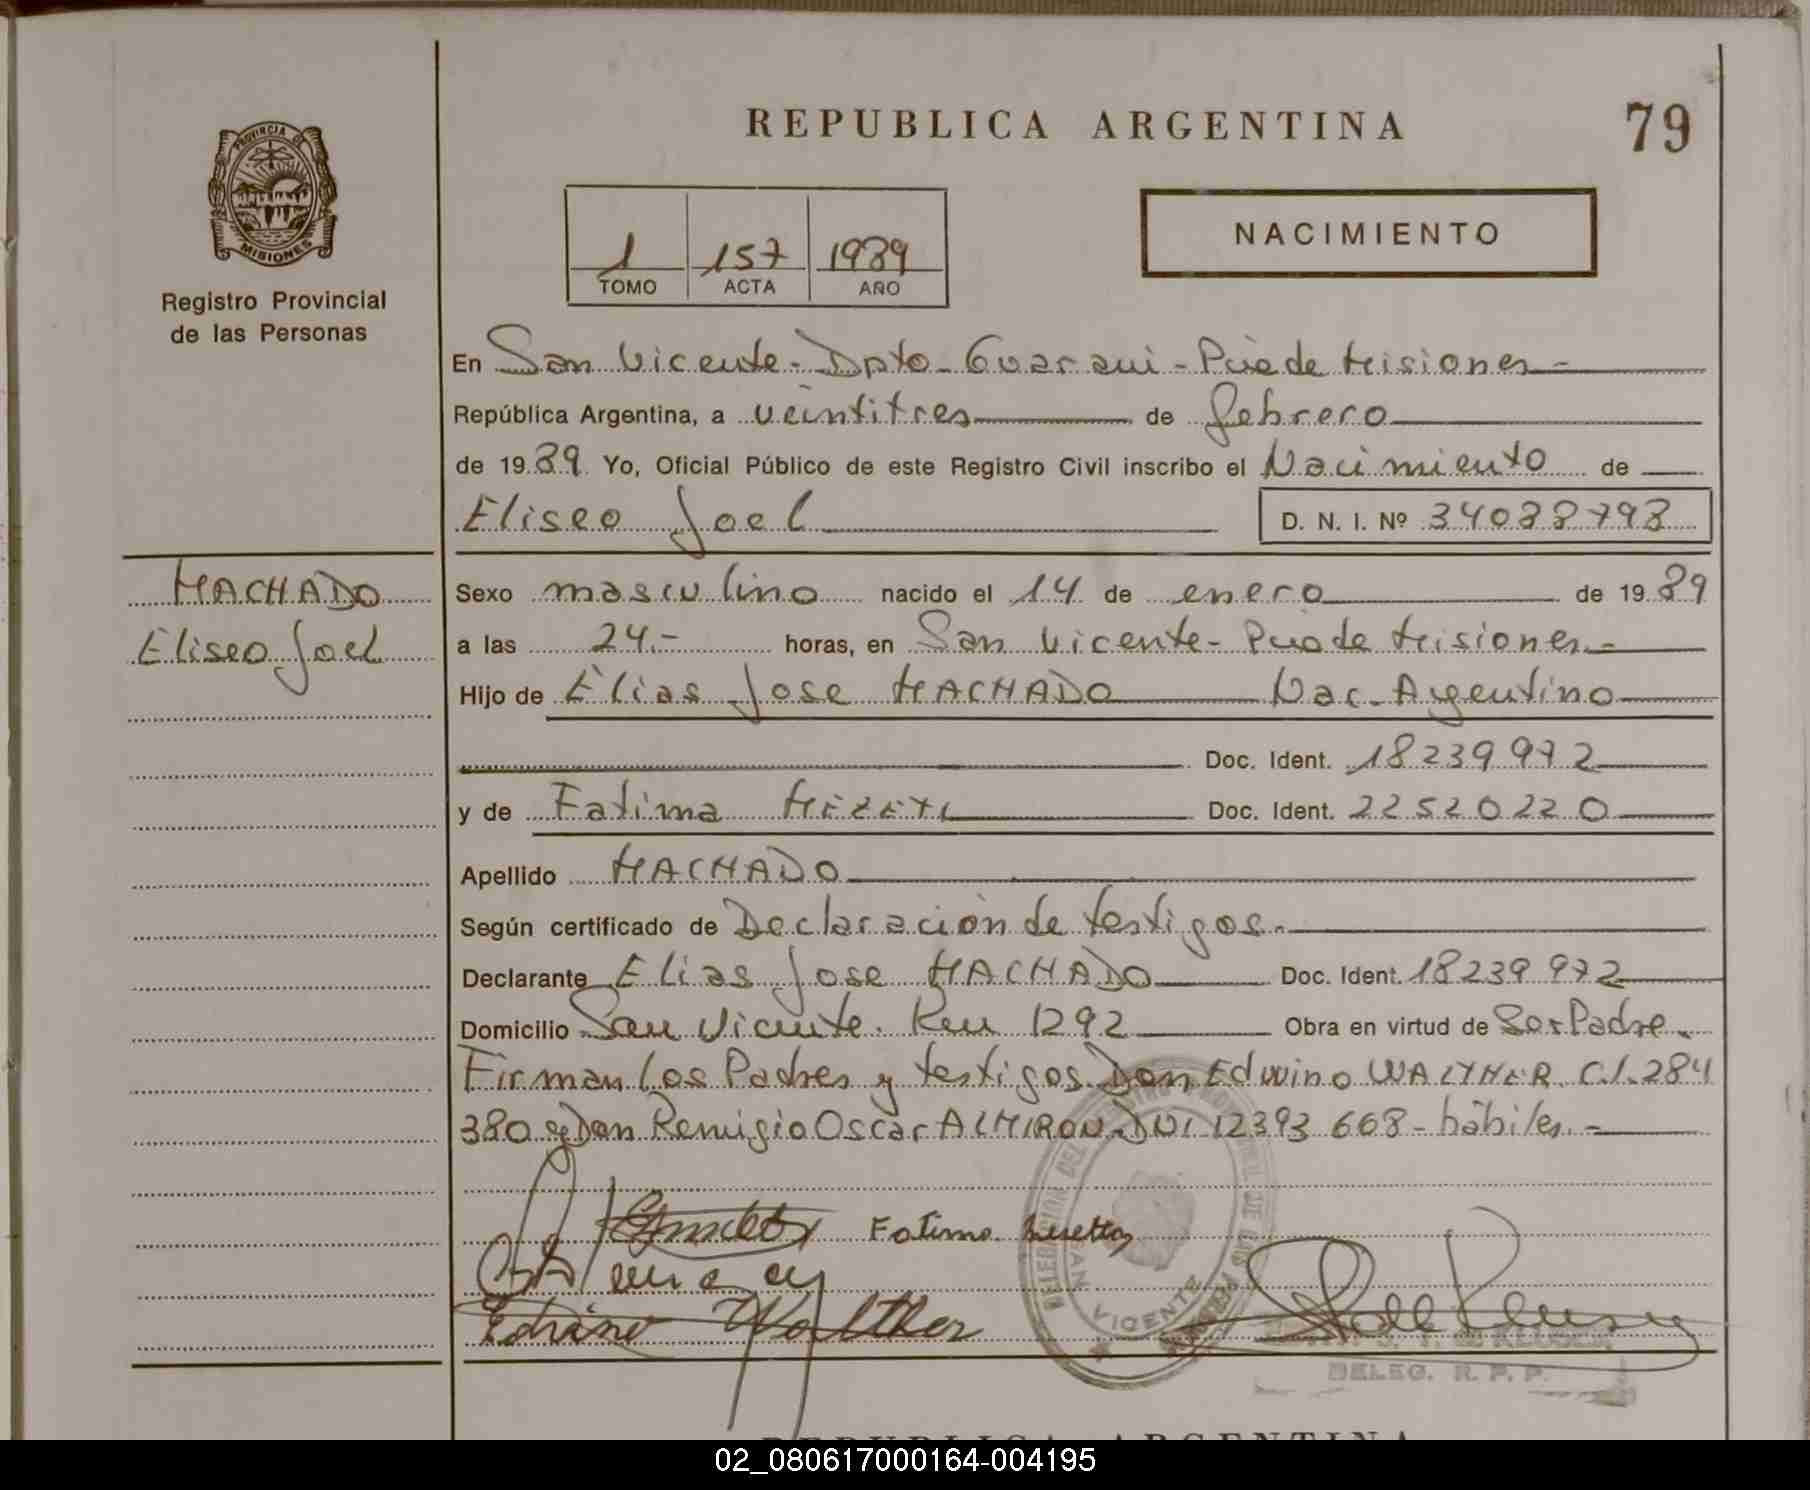 REPUBLICA ARGENTINA
79
PROVINCIA DE
MISIONES
Registro Provincial
de las Personas
1 157 1989
TOMO ACTA AÑO
NACIMIENTO
En San Vicente - Dpto - Guarani - Pcia de Misiones -
República Argentina, a veintitres de febrero
de 19 89 Yo, Oficial Público de este Registro Civil inscribo el Nacimiento de
Eliseo Joel D. N. I. Nº 34088798
MACHADO
Eliseo Joel
Sexo masculino nacido el 14 de enero de 19 89
a las 24.- horas, en San Vicente - Pcia de Misiones.-
Hijo de Elias Jose MACHADO Nac. Argentino
Doc. Ident. 18239972
y de Fatima Doc. Ident. 22520220
Apellido MACHADO
Según certificado de Declaración de testigos.
Declarante Elias Jose MACHADO Doc. Ident. 18239972
Domicilio San Vicente. Km 1292 Obra en virtud de Ser Padre.
Firman los Padres y testigos Don Edwino WALTHER C.I. 284
380 y Don Remigio Oscar ALMIRON - DNI 12393 668 - hábiles. -
Fatima
Walther
SAN VICENTE
DELEG. R. P. P.
REPUBLICA ARGENTINA
02_080617000164-004195